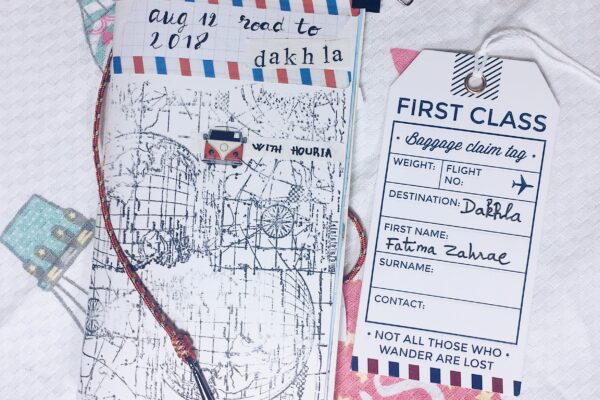 aug 12 road to
2018
dakhla
WITH HOURIA
FIRST CLASS
Baggage claim tag
WEIGHT: FLIGHT NO:
DESTINATION: Dakhla
FIRST NAME:
Fatima Zahrae
SURNAME:
CONTACT:
• NOT ALL THOSE WHO •
WANDER ARE LOST